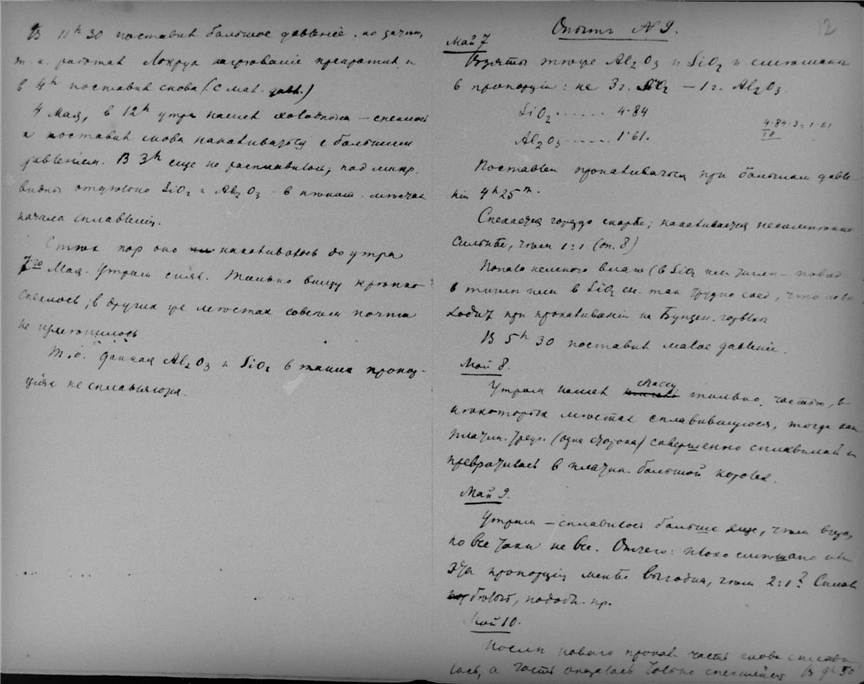 В 11ʰ30 поставил большое давленіе, но зачем,
т. к. работал нагрѣваніе прекратил и
в 4ʰ поставил снова (с мал. давл.)
4 Мая, в 12ʰ утра нашел холодным — спеклось
и поставил снова накаливаться с большим
давленіем. В 3ʰ еще не расплавился, под микр.
видны отдѣльно SiO₂ и Al₂O₃ в
начала сплавленія.
С тѣх пор оно накаливалось до утра
7го Мая. Утром снял. Только внизу крѣпко
спеклось, в других же мѣстах совсем почти
не
Т. о. данная Al₂O₃ и SiO₂ в таких пропор-
ціях не сплавляются.
Опыт № 9.
12
Май 7
Взяты тѣ же Al₂O₃ и SiO₂ и смѣшаны
в пропорціи: на 3 г. SiO₂ — 1 г. Al₂O₃.
SiO₂ ...... 4.84
Al₂O₃ ...... 1.61.
4.84:3=1.61
18
Поставлен прокаливаться при большом давле-
ніи 4ʰ25ᵐ.
Спекается гораздо скорѣе; накаливается
сильнѣе, чѣм 1:1 (оп. 8)
Попало немного влаги (в SiO₂ или
в или в SiO₂ так трудно что
при прокаливаніи на Бунзен. горѣлкѣ
В 5ʰ30 поставил малое давленіе.
Май 8.
Утром нашел массу только частью, в
нѣкоторых мѣстах сплавившуюся, тогда как
платин. (одна сторона) совершенно сплавилась и
превратилась в платин. большой королек.
Май 9.
Утром — сплавилось больше еще, чѣм вчера,
но все таки не все. Отчего: плохо смѣшано или
эта пропорція менѣе выгодна, чѣм 2:1?
подобн. пр.
Май 10.
Послѣ нового прокал. часть снова сплави-
лась, а часть оказалась только спекшейся. В 9ʰ30